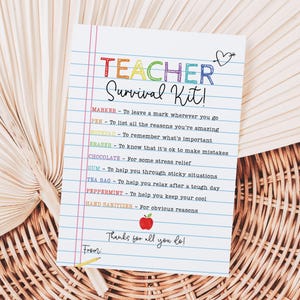 TEACHER
Survival Kit!
MARKER - To leave a mark wherever you go
PEN - To list all the reasons you're amazing
- To remember what's important
ERASER - To know that it's ok to make mistakes
CHOCOLATE - For some stress relief
GUM - To help you through sticky situations
TEA BAG - To help you relax after a tough day
PEPPERMINT - To help you keep your cool
HAND SANITIZER - For obvious reasons
Thanks for all you do!
From: